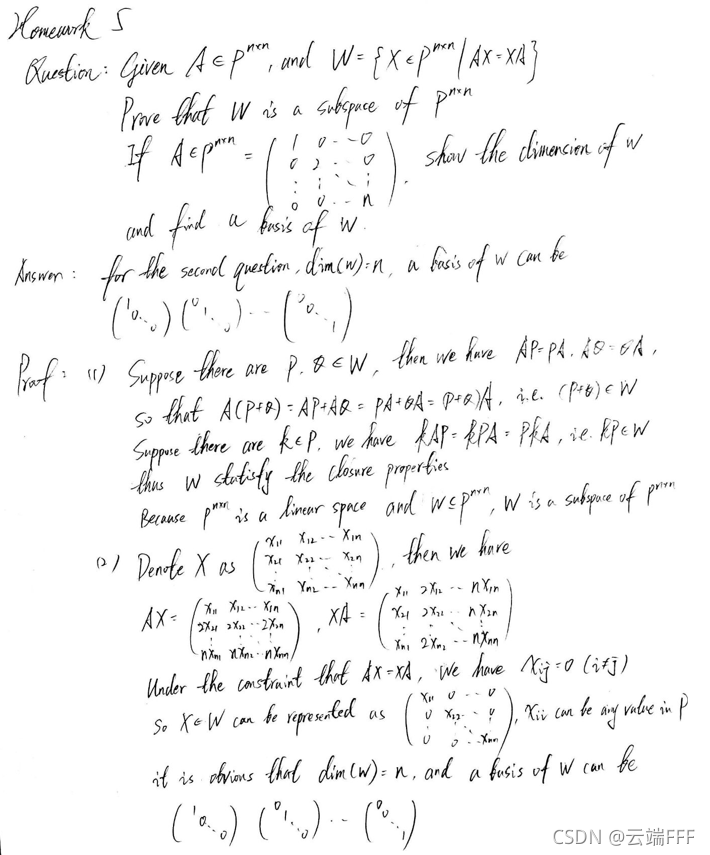 Homework 5
Question: Given A ∈ P^{n×n}, and W = {X ∈ P^{n×n} | AX = XA}
Prove that W is a subspace of P^{n×n}
If A ∈ P^{n×n} = ( 1 0 ·· 0 / 0 2 ·· 0 / ⋮ ⋮ ⋱ ⋮ / 0 0 ·· n ). show the dimension of W
and find a basis of W.
Answer: for the second question, dim(W)=n, a basis of W can be
(1 0 ⋱ 0) (0 1 ⋱ 0) ··· (0 0 ⋱ 1)
Proof: (1) Suppose there are P. Q ∈ W, then we have AP=PA. AQ=QA,
so that A(P+Q) = AP+AQ = PA+QA = (P+Q)A, i.e. (P+Q) ∈ W
Suppose there are k∈P, we have kAP = kPA = PkA, i.e. kP ∈ W
thus W statisfy the closure properties
Because P^{n×n} is a linear space and W ⊆ P^{n×n}, W is a subspace of P^{n×n}
(2) Denote X as ( x11 x12 ·· x1n / x21 x22 ·· x2n / ⋮ ⋮ ⋱ ⋮ / xn1 xn2 ·· xnn ), then we have
AX = ( x11 x12 ·· x1n / 2x21 2x22 ·· 2x2n / ⋮ ⋮ ⋱ ⋮ / nxn1 nxn2 ·· nxnn ), XA = ( x11 2x12 ·· nx1n / x21 2x22 ·· nx2n / ⋮ ⋮ ⋱ ⋮ / xn1 2xn2 ·· nxnn )
Under the constraint that AX=XA, we have xij=0 (i≠j)
so X∈W can be represented as ( x11 0 ·· 0 / 0 x22 ·· 0 / ⋮ ⋮ ⋱ ⋮ / 0 0 ·· xnn ), xii can be any value in P
it is obvious that dim(W)=n, and a basis of W can be
(1 0 ⋱ 0) (0 1 ⋱ 0) ··· (0 0 ⋱ 1)
CSDN @云端FFF